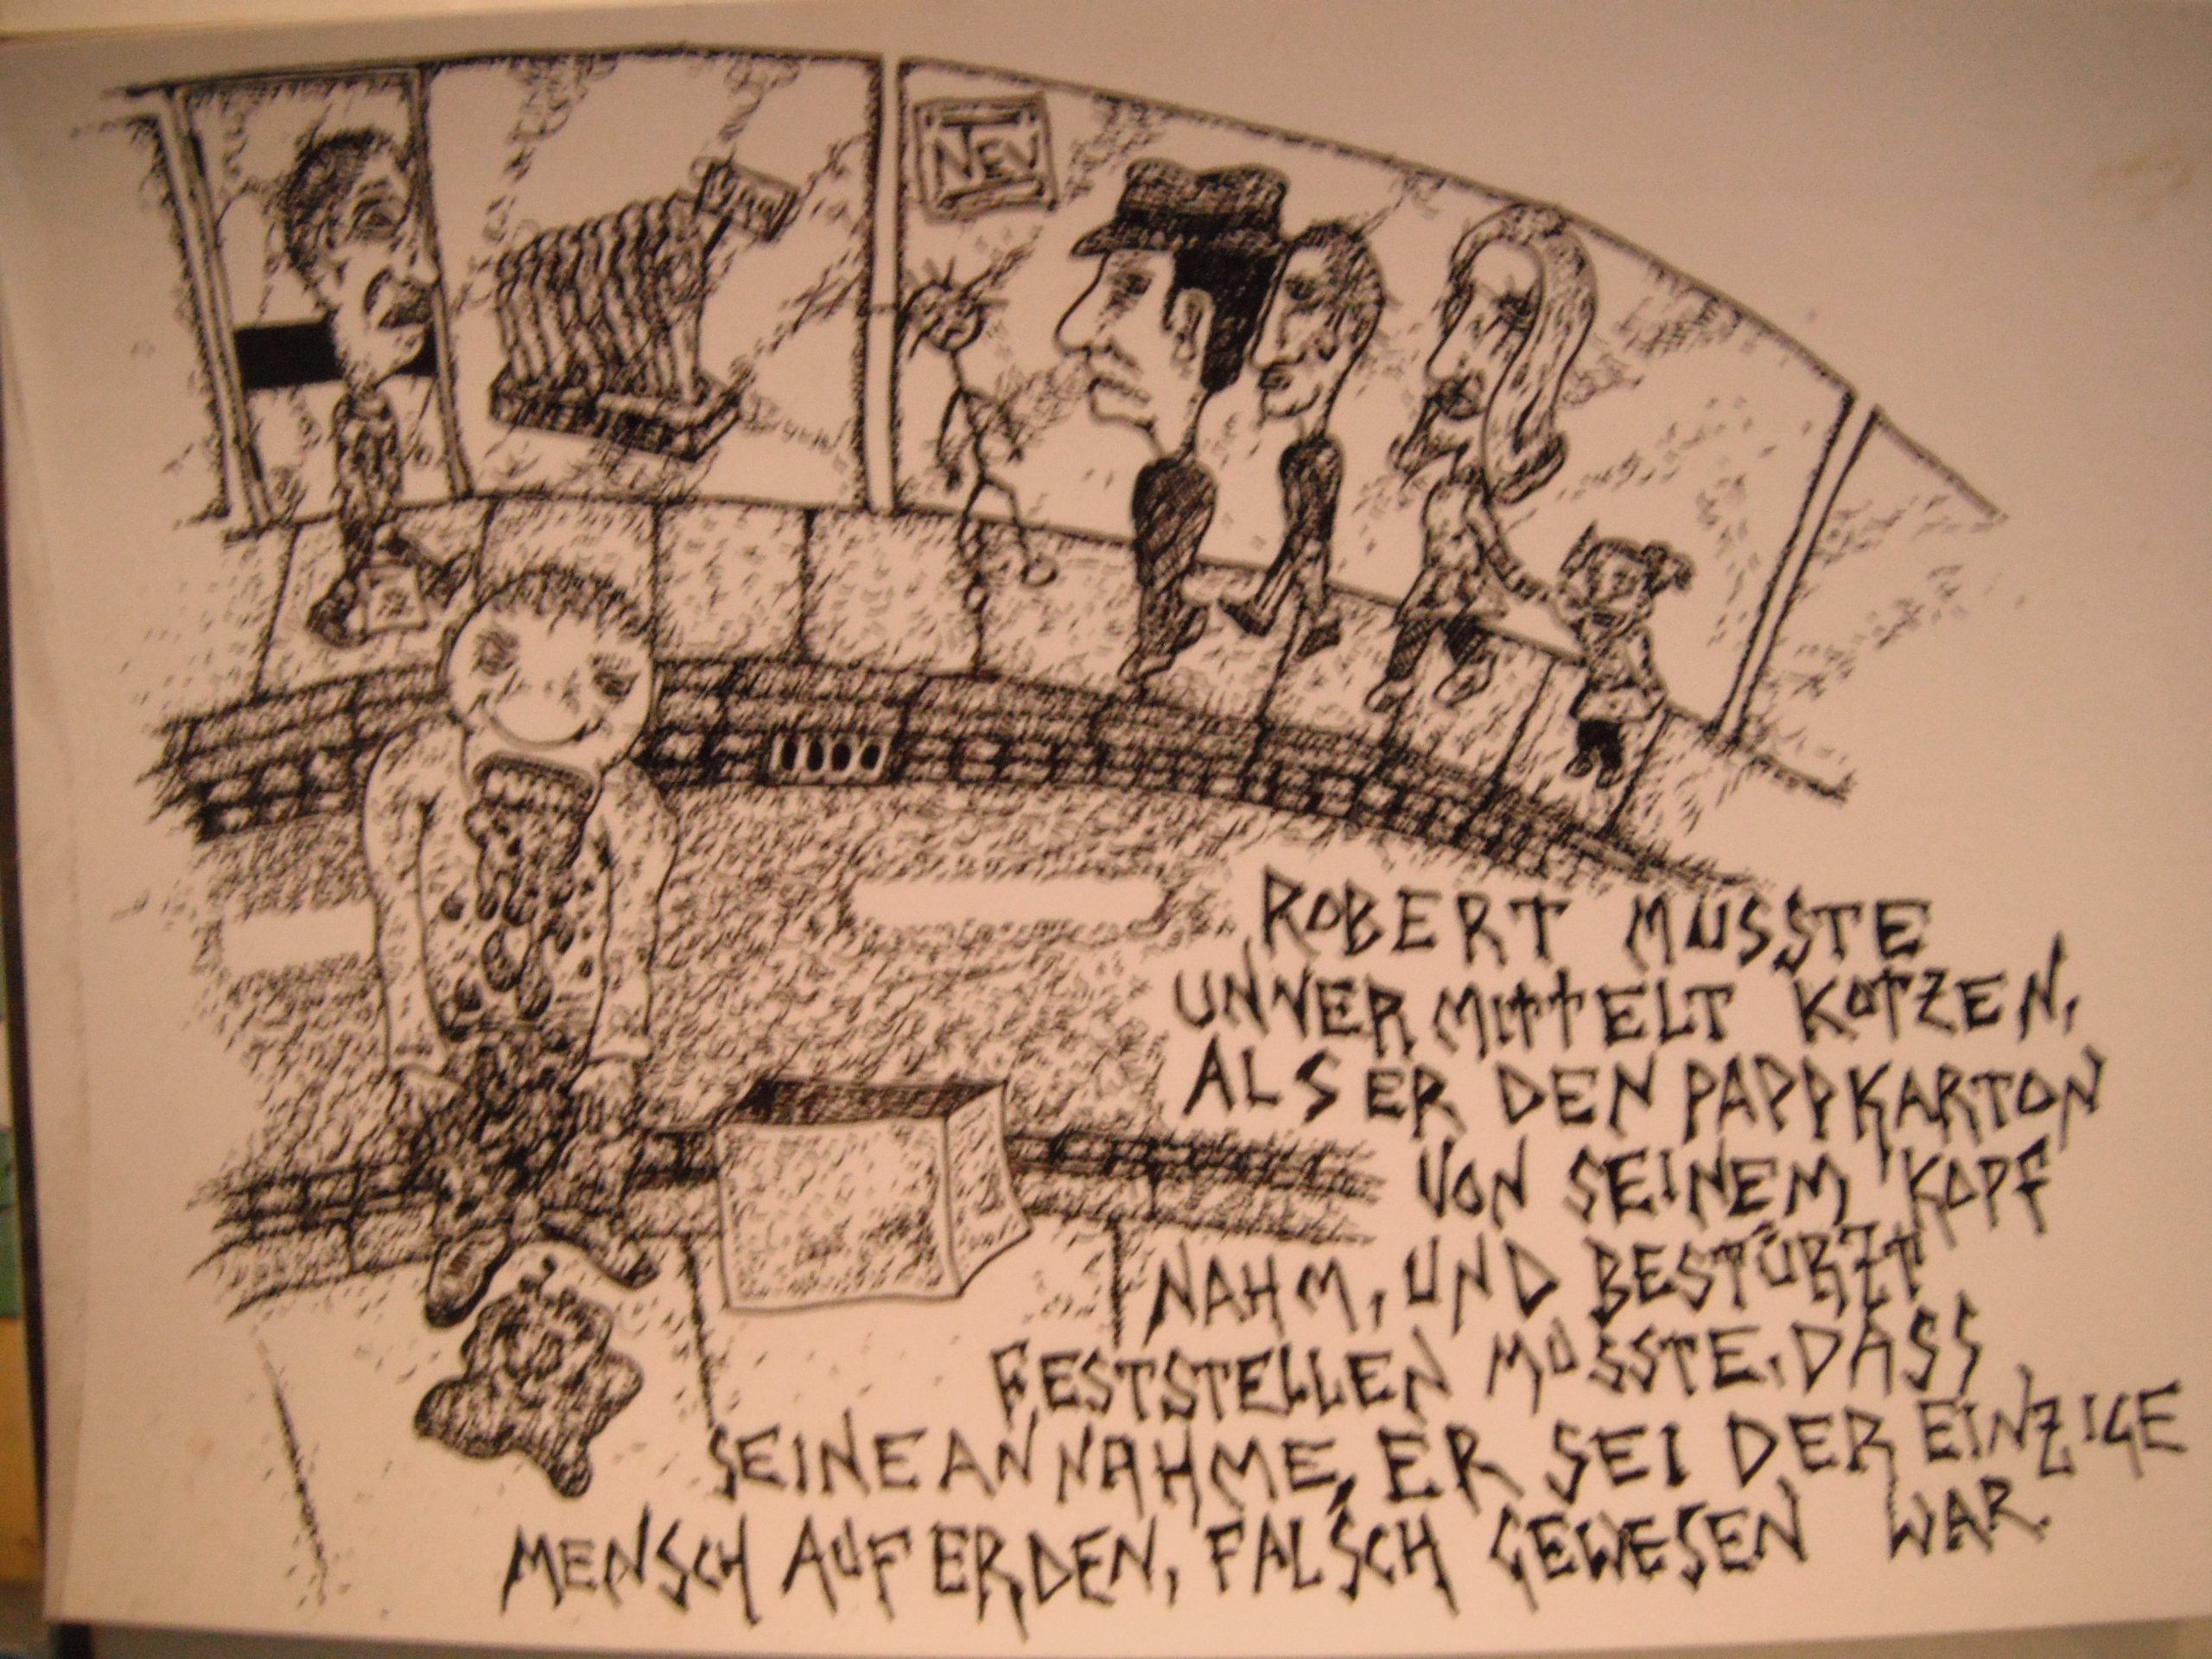 NEU
ROBERT MUSSTE
UNVERMITTELT KOTZEN,
ALS ER DEN PAPPKARTON
VON SEINEM KOPF
NAHM, UND BESTÜRZT
FESTSTELLEN MUSSTE, DASS
SEINE ANNAHME, ER SEI DER EINZIGE
MENSCH AUF ERDEN, FALSCH GEWESEN WAR.